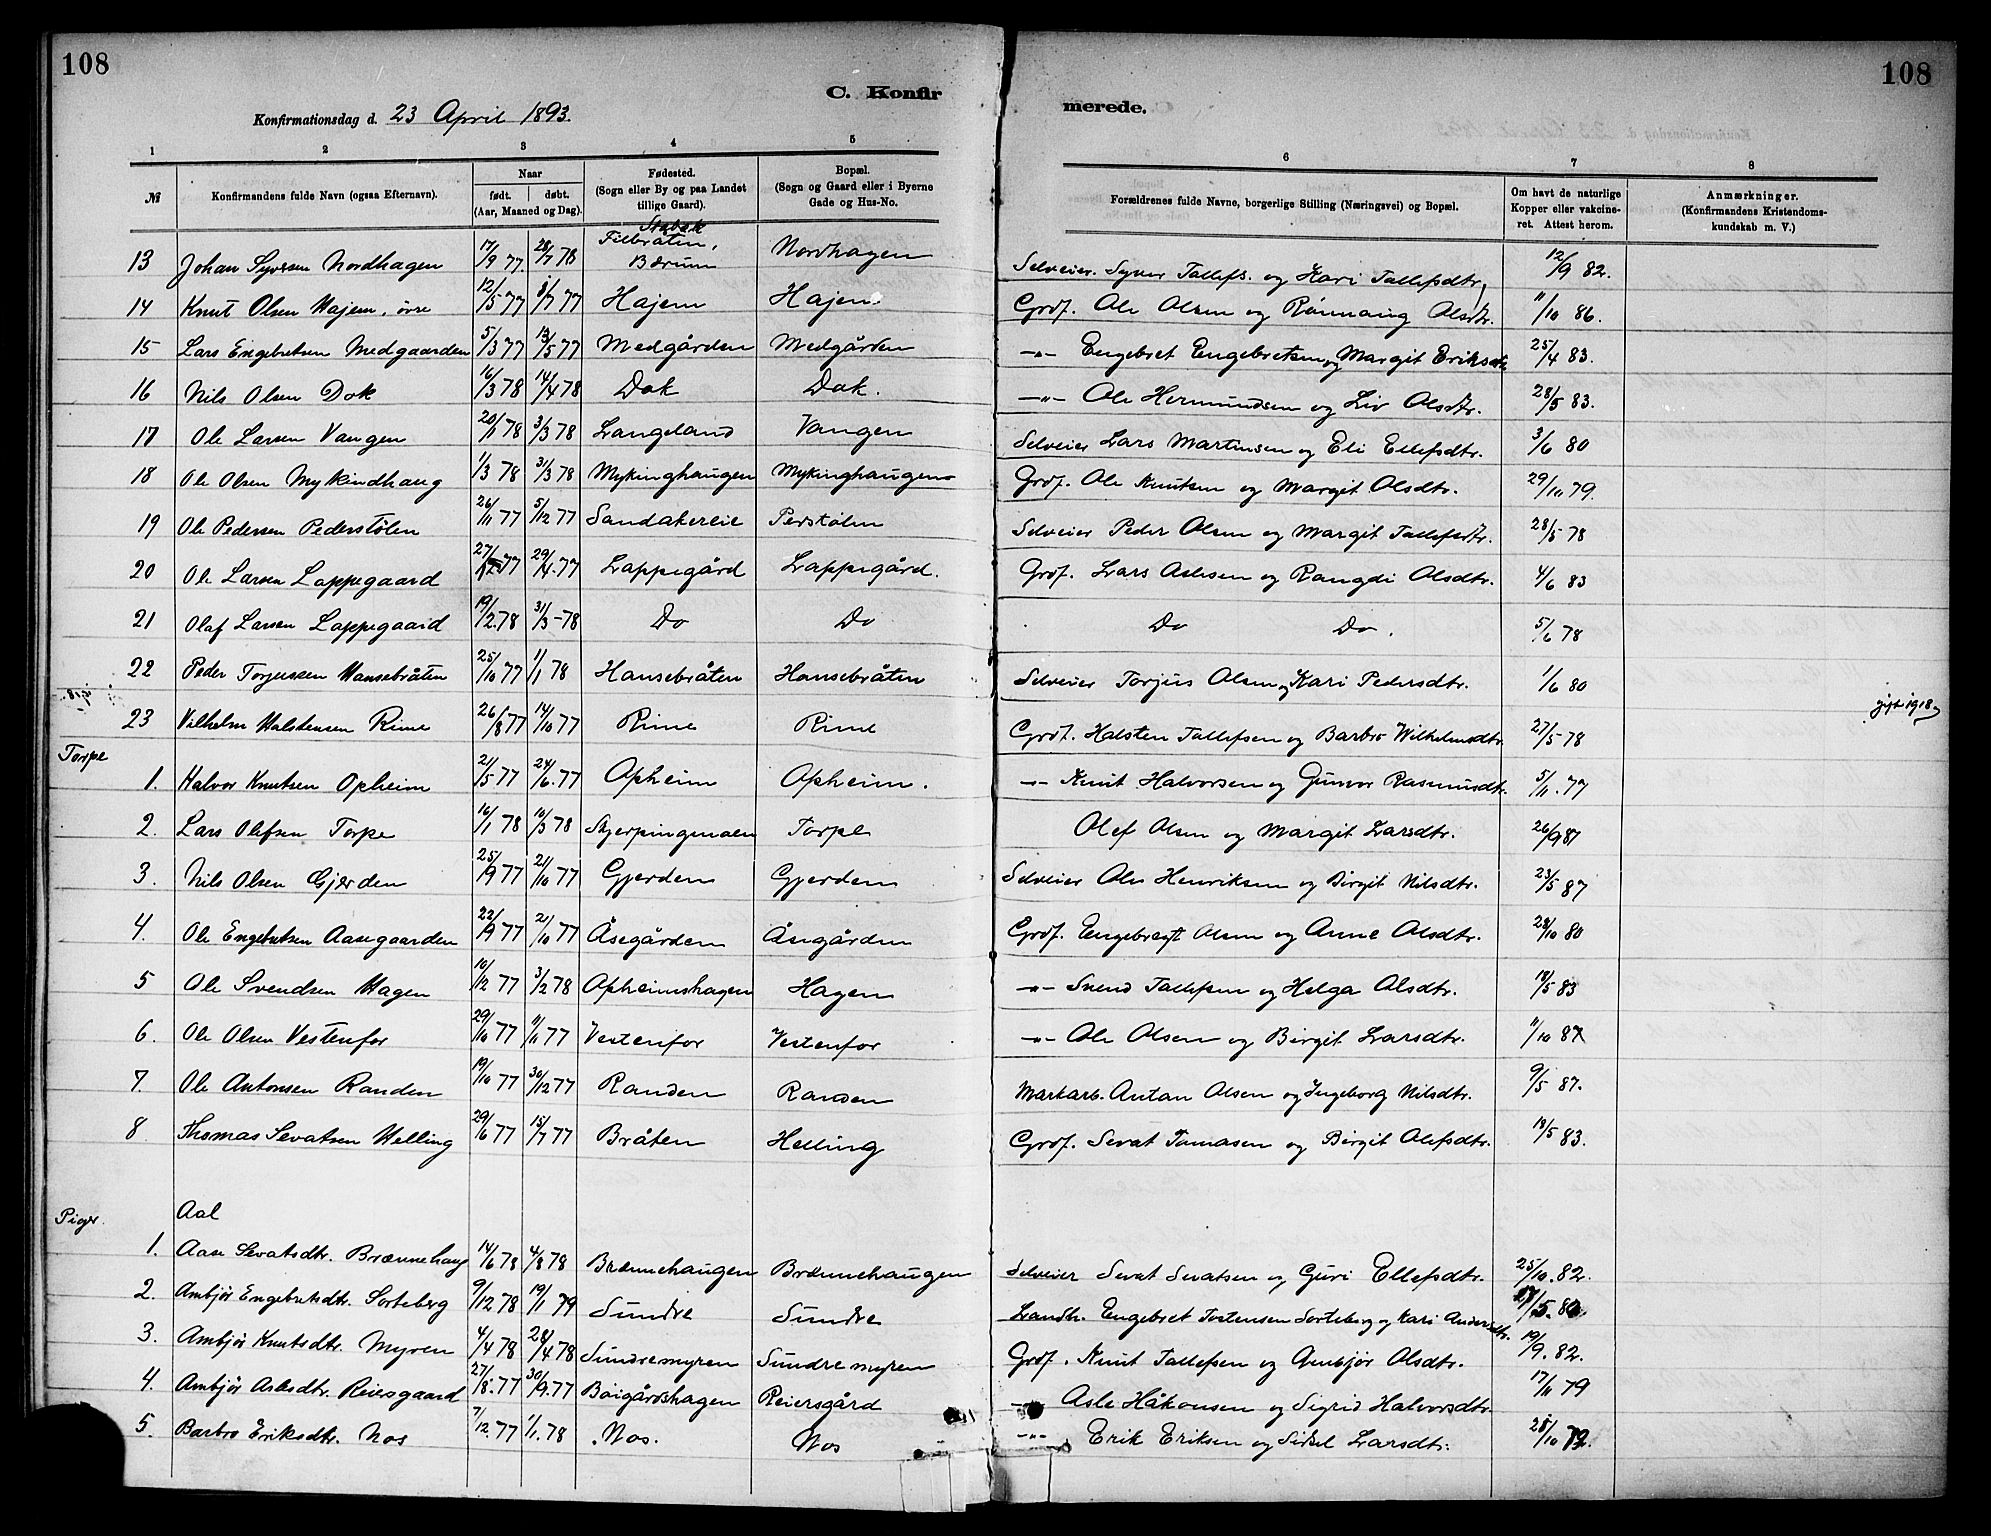 108
108
C. Konfirmerede.
Konfirmationsdag d. 23 April 1893.
1 2 3 4 5 6 7 8
№ Konfirmandens fulde Navn (ogsaa Efternavn). Naar født. døbt. (Aar, Maaned og Dag). Fødested. (Sogn eller By og paa Landet tillige Gaard). Bopæl. (Sogn og Gaard eller i Byerne Gade og Hus-No. Forældrenes fulde Navne, borgerlige Stilling (Næringsvei) og Bopæl. Om havt de naturlige Kopper eller vakcineret. Attest herom. Anmærkninger. (Konfirmandens Kristendomskundskab m. V.)
13 Johan Syversen Nordhagen 17/9 77. 28/7 78 Bærum Nordhagen Selveier. Syver Tollefs. og Kari Tollefsdtr. 12/9 82.
14 Knut Olsen Hajem, øvre 12/5 77 8/7 77 Hajem Hajem Grdf. Ole Olsen og Rønnaug Olsdtr. 11/10 86.
15 Lars Engebretsen Medgaarden 5/3 77 13/5 77 Medgården Medgården -"- Engebret Engebretsen og Margit Eriksdtr. 25/4 83.
16 Nils Olsen Dok 16/3 78 14/4 78 Dok Dok. -"- Ole Hermundsen og Liv Olsdtr. 28/5 83.
17 Ole Larsen Vangen 20/1 78 3/3 78 Langeland Vangen Selveier Lars Martinsen og Eli Ellefsdtr. 3/6 80
18 Ole Olsen Mykindhaug 1/3 78 31/3 78 Mykinghaugen Mykinghaugen Grdf. Ole Knutsen og Margit Olsdtr. 29/10 79.
19 Ole Pedersen Pederstølen 26/11 77 5/12 77 Sandakereie Perstølen Selveier Peder Olsen og Margit Tollefsdtr. 28/5 78
20 Ole Larsen Lappegaard 27/ 77 29/4.77 Lappegård Lappegård. Grdf. Lars Aslesen og Rangdi Olsdtr. 4/6 83
21 Olaf Larsen Lappegaard 19/2.78 31/3-78 Do Do Do Do. 5/6 78
22 Peder Torjussen Hansebråten 25/10 77 1/1 78 Hansebråten Hansebråten Selveier Torjus Olsen og Kari Pedersdtr. 1/6 80
23 Vilhelm Halstensen Rime 26/8 77 14/10 77 Rime Rime Grdf. Halsten Tollefsen og Barbro Wilhelmsdtr. 27/5 78 gift 1918
Torpe
1. Halvor Knutsen Opheim 21/5 77 24/6.77 Opheim Opheim. -"- Knut Halvorsen og Gunvor Rasmusdtr. 5/11.77
2. Lars Olefsen Torpe 16/1 78 10/3 78 Skjerpingmoen Torpe Olef Olsen og Margit Larsdtr. 26/9 87
3. Nils Olsen Gjerden 25/9 77 21/10 77 Gjerden Gjerden Selveier Ole Henriksen og Birgit Nilsdtr. 23/5 87
4. Ole Engebretsen Aasegaarden 22/9 77 21/10 77 Åsegården Åsegården Grdf. Engebregt Olsen og Anne Olsdtr. 28/10 80
5 Ole Svendsen Hagen 10/12 77 3/2 78 Opheimshagen Hagen -"- Svend Tollefsen og Helga Olsdtr. 18/5 83
6. Ole Olsen Vestenfor 29/10 77 11/11 77 Vestenfor Vestenfor -"- Ole Olsen og Birgit Larsdtr. 11/10 87
7. Ole Antonsen Randen 19/10 77 30/12 77 Randen Randen Markarb. Anton Olsen og Ingeborg Nilsdtr. 9/5 87.
8 Thomas Sevatsen Helling 29/6 77 15/7 77 Bråten Helling Grdf. Sevat Tomasen og Birgit Olefsdtr. 18/5 83.
Piger. Aal
1. Aase Sevatsdtr. Brænnehaug 14/6 78 4/8 78 Brænnehaugen Brænnehaugen Selveier Sevat Sevatsen og Guri Ellefsdtr. 25/10.82.
2. Ambjør Engebretsdtr. Sorteberg 9/12 78 19/1 79 Sundre Sundre Landh. Engebret Tostensen Sorteberg og Kari Andersdtr.
3. Ambjør Knutsdtr. Myren 4/4 78 28/4 78 Sundremyren Sundremyren Grdf. Knut Tollefsen og Ambjør Olsdtr. 19/9.82.
4. Ambjør Aslesdtr. Reiersgaard 27/8.77 30/9.77 Boigårdshagen Reiersgård -"- Asle Håkonsen og Sigrid Halvorsdtr. 17/11 79
5. Barbro Eriksdtr. Nos 7/12.77 1/1.78 Nos. Nos -"- Erik Eriksen og Sidsel Larsdtr. 28/10